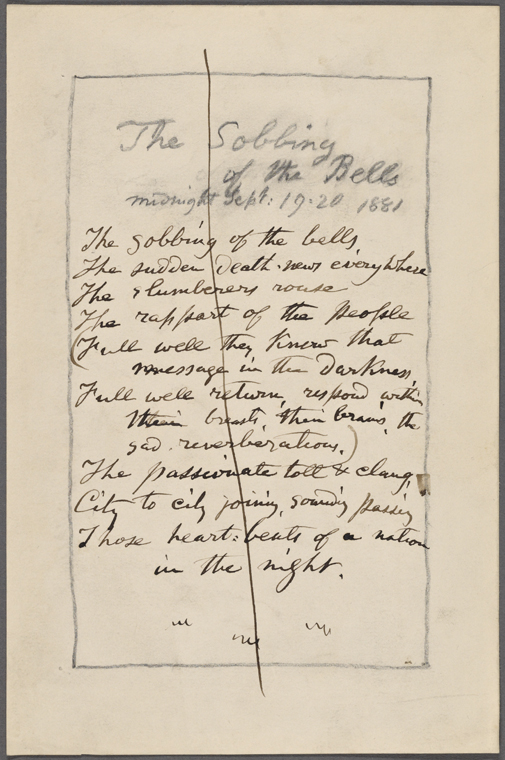 The Sobbing
of the Bells
midnight Sept: 19-20 1881
The sobbing of the bells,
The sudden death-news everywhere
The slumberers rouse
The rapport of the people
(Full well they know that
message in the darkness,
Full well return, respond within
their breasts, their brains, the
sad reverberations,)
The passionate toll & clang,
City to city joining, sounding passing
Those heart-beats of a nation
in the night.